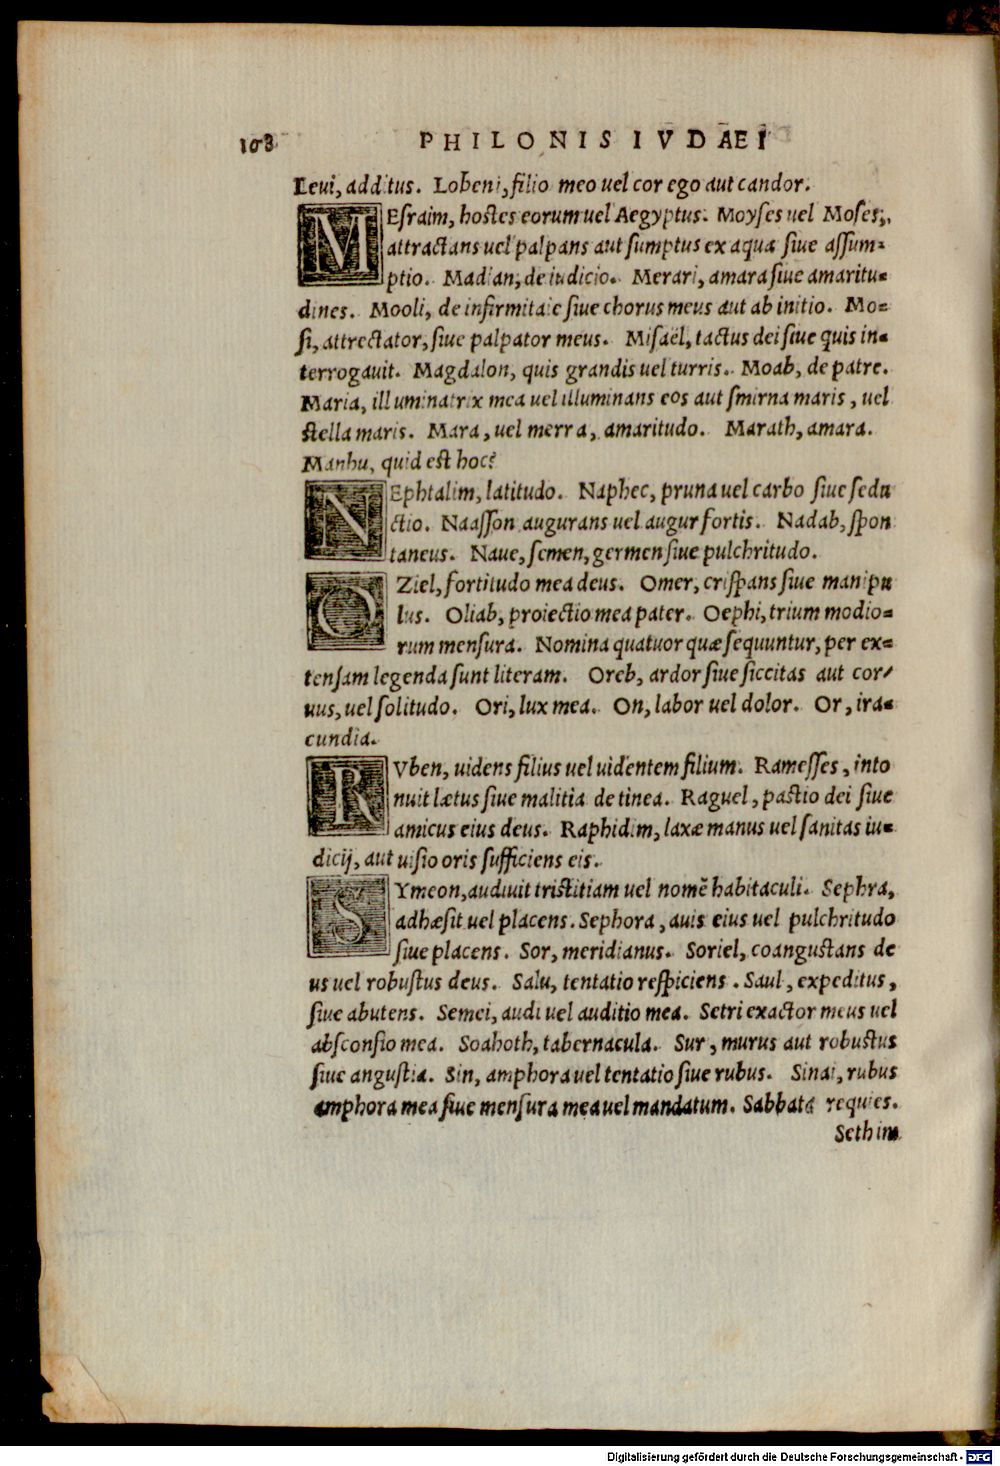 108 PHILONIS IVDAEI
Leui, additus. Lobeni, filio meo uel cor ego aut candor.
MEsraim, hostes eorum uel Aegyptus. Moyses uel Moses,
attractans uel palpans aut sumptus ex aqua siue assum=
ptio. Madian, de iudicio. Merari, amara siue amaritu=
dines. Mooli, de infirmitate siue chorus meus aut ab initio. Mo=
si, attrectator, siue palpator meus. Misaël, tactus dei siue quis in=
terrogauit. Magdalon, quis grandis uel turris. Moab, de patre.
Maria, illuminatrix mea uel illuminans eos aut smirna maris, uel
stella maris. Mara, uel merra, amaritudo. Marath, amara.
Manhu, quid est hoc?
NEphtalim, latitudo. Naphec, pruna uel carbo siue sedu
ctio. Naasson augurans uel augur fortis. Nadab, spon
taneus. Naue, semen, germen siue pulchritudo.
OZiel, fortitudo mea deus. Omer, crispans siue manipu
lus. Oliab, proiectio mea pater. Oephi, trium modio=
rum mensura. Nomina quatuor quæ sequuntur, per ex=
tensam legenda sunt literam. Oreb, ardor siue siccitas aut cor/
uus, uel solitudo. Ori, lux mea. On, labor uel dolor. Or, ira=
cundia.
RVben, uidens filius uel uidentem filium. Ramesses, into
nuit lætus siue malitia de tinea. Raguel, pastio dei siue
amicus eius deus. Raphidim, laxæ manus uel sanitas iu=
dicij, aut uisio oris sufficiens eis.
SYmeon, audiuit tristitiam uel nomē habitaculi. Sephra,
adhæsit uel placens. Sephora, auis eius uel pulchritudo
siue placens. Sor, meridianus. Soriel, coangustans de
us uel robustus deus. Salu, tentatio respiciens. Saul, expeditus,
siue abutens. Semei, audi uel auditio mea. Setri exactor meus uel
absconsio mea. Soahoth, tabernacula. Sur, murus aut robustus
siue angustia. Sin, amphora uel tentatio siue rubus. Sinai, rubus
amphora mea siue mensura mea uel mandatum. Sabbata requies.
Sethim
Digitalisierung gefördert durch die Deutsche Forschungsgemeinschaft - DFG